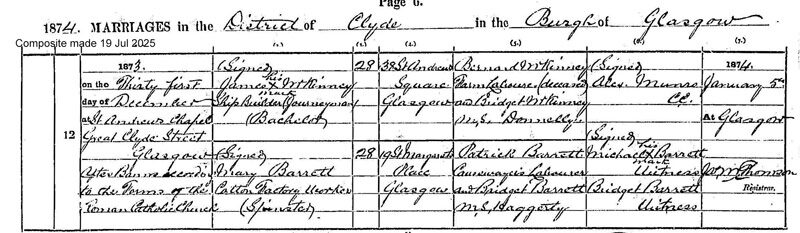 Page 6.
1874. MARRIAGES in the District of Clyde in the Burgh of Glasgow
Composite made 19 Jul 2025
(1.) (2.) (3.) (4.) (5.) (6.) (7.)
12
1873.
on the Thirty first
day of December
at St Andrew's Chapel
Great Clyde Street
Glasgow
After Banns accordin
to the Forms of the
Roman Catholic Church
(Signed)
James his x mark McKinney
Ship Builder Journeyman
(Bachelor)
(Signed)
Mary Barrett
Cotton Factory Worker
(Spinster)
28
28
38 St Andrew
Square
Glasgow
19 St Margaret
Place
Glasgow
Bernard McKinney
Farm Labourer (deceased)
and Bridget McKinney
M.S. Donnelly
Patrick Barrett
Causewayer's Labourer
and Bridget Barrett
M.S. Haggerty
(Signed)
Alex. Munro
C.C.
(Signed)
Michael his x mark Barrett
Witness
Bridget Barrett
Witness
1874.
January 5th
At Glasgow
Wm Thomson
Registrar.